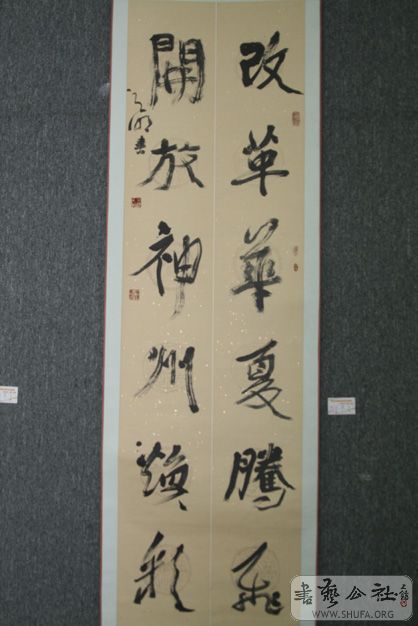 改革華夏騰飛
開放神州煥彩
書藝公社
WWW.SHUFA.ORG